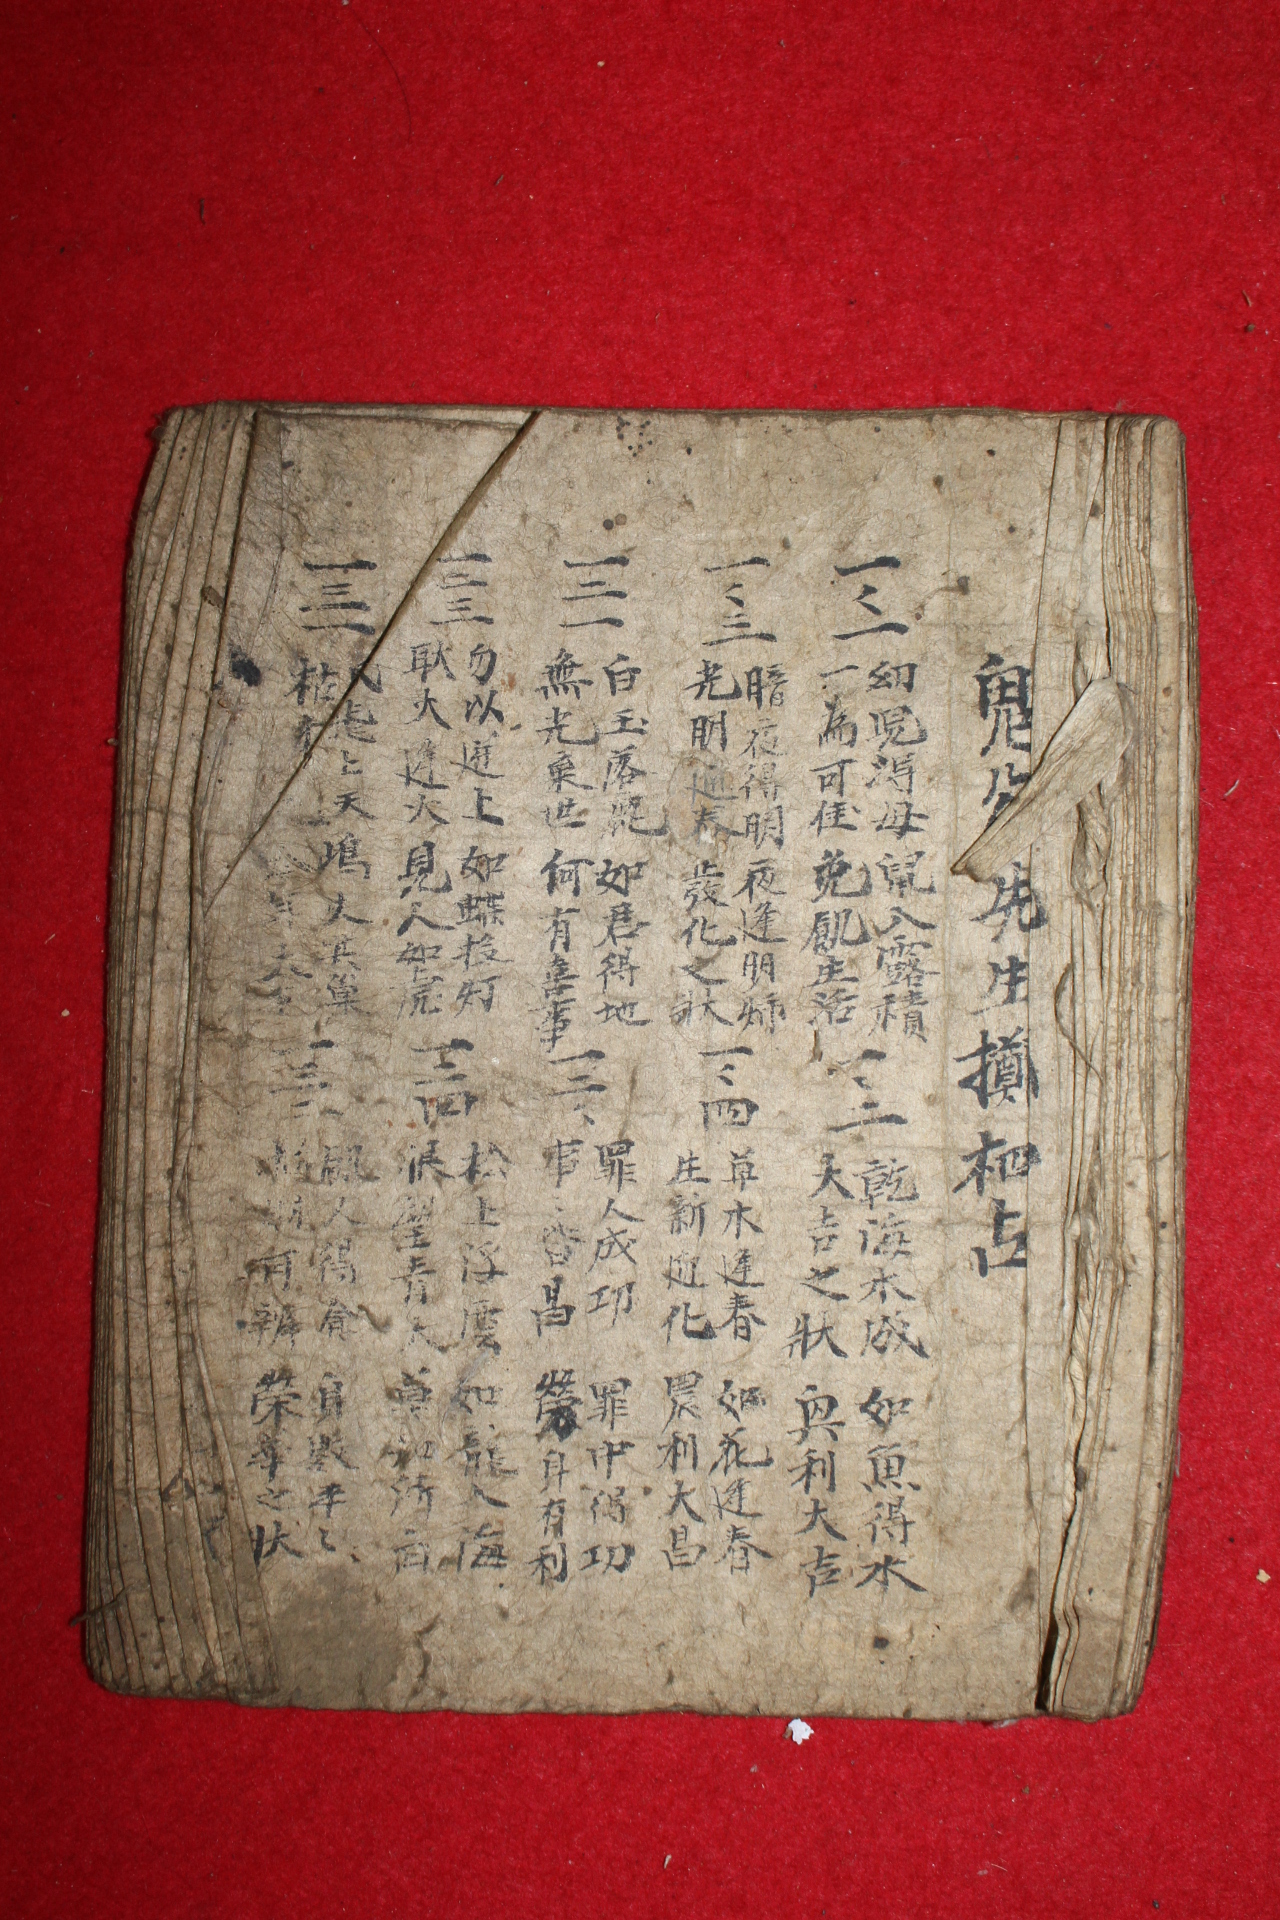 鬼谷先生擲柶占
一〻一
幼児得母 兒入露積
一為可佳 免飢生活
一〻二
乾海水成 如魚得水
大吉之狀 興利大吉
一〻三
暗夜得明 夜逢明師
光明逅春 發化之狀
一〻四
草木逢春 如花逢春
生新逅化 畏利大昌
一二一
白玉落泥 如君得地
無光棄世 何有喜事
一二〻
罪人成功 罪中得功
事〻皆昌 勞身有利
一二三
勿以進上 如蝶投灯
耿火逢火 見人如虎
一二四
松上浮雲 如龍入海
浪望青天
一三一
上天 鳴大其巢
枯木
一三
飢人得食 自
有 榮華之狀